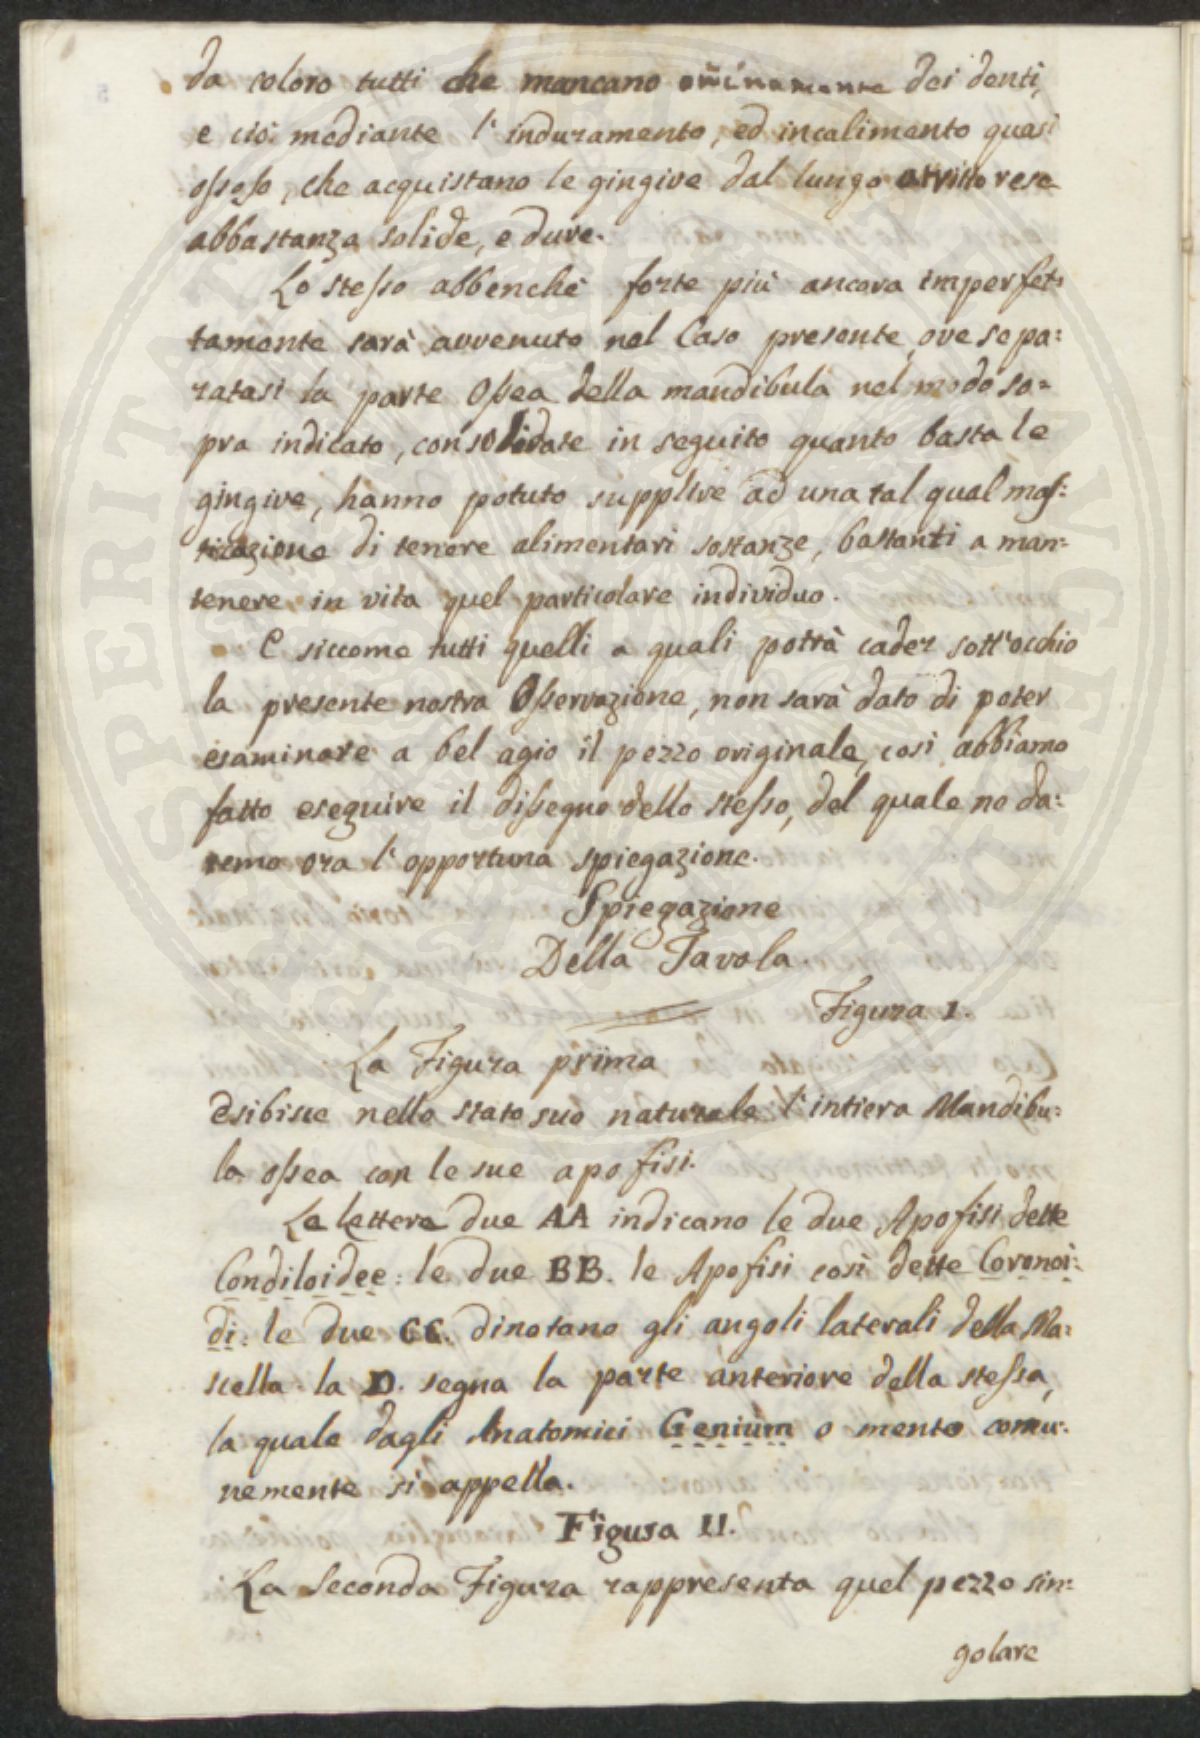 da coloro tutti che mancano oñinamente dei denti,
e ciò mediante l'induramento, ed incalimento quasi
osseso, che acquistano le gingive dal lungo attritto rese
abbastanza solide, e dure.
Lo stesso abbenchè forte più ancora imperfet:
tamente sarà avvenuto nel Caso presente, ove sepa:
ratasi la parte Ossea della mandibula nel modo so=
pra indicato, consolidate in seguito quanto basta le
gingive, hanno potuto supplire ad una tal qual mas:
ticazione di tenere alimentari sostanze, bastanti a man:
tenere in vita quel particolare individuo.
E siccome tutti quelli a quali potrà cader sott'occhio
la presente nostra Osservazione, non sarà dato di poter
esaminare a bel agio il pezzo originale, così abbiamo
fatto eseguire il dissegno dello stesso, del quale no da:
remo ora l'opportuna spiegazione.
Spiegazione
Della Tavola.
Figura 1.
La Figura prima
Esibisce nello stato suo naturale l'intiera Mandibu:
la ossea con le sue apofisi.
Le lettere due AA indicano le due Apofisi dette
Condiloidee: le due BB. le Apofisi così dette Coronoi:
di: le due CC. dinotano gli angoli laterali della Ma:
scella: la D. segna la parte anteriore della stessa,
la quale dagli Anatomici Genium o mento comu:
nemente si appella.
Figura II.
La Seconda Figura rappresenta quel pezzo sin:
golare
SPERITAT